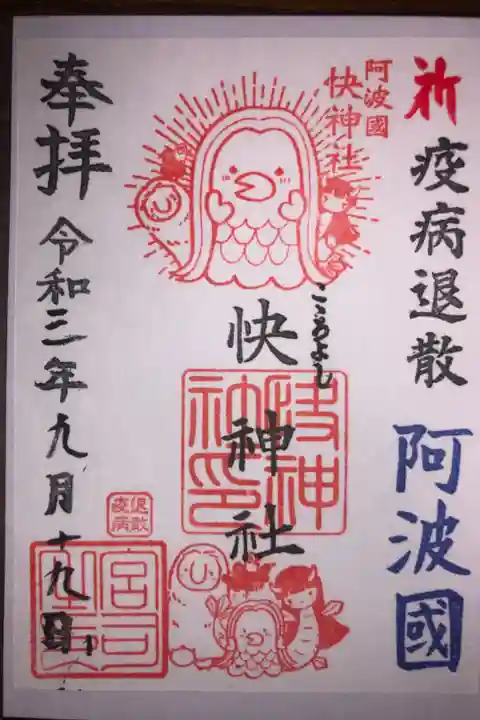 祈
疫病退散
阿波國
阿波國
快神社
こころよし
快神社
快神社印
退散
疫病
奉拝
令和三年九月十九日
宮司